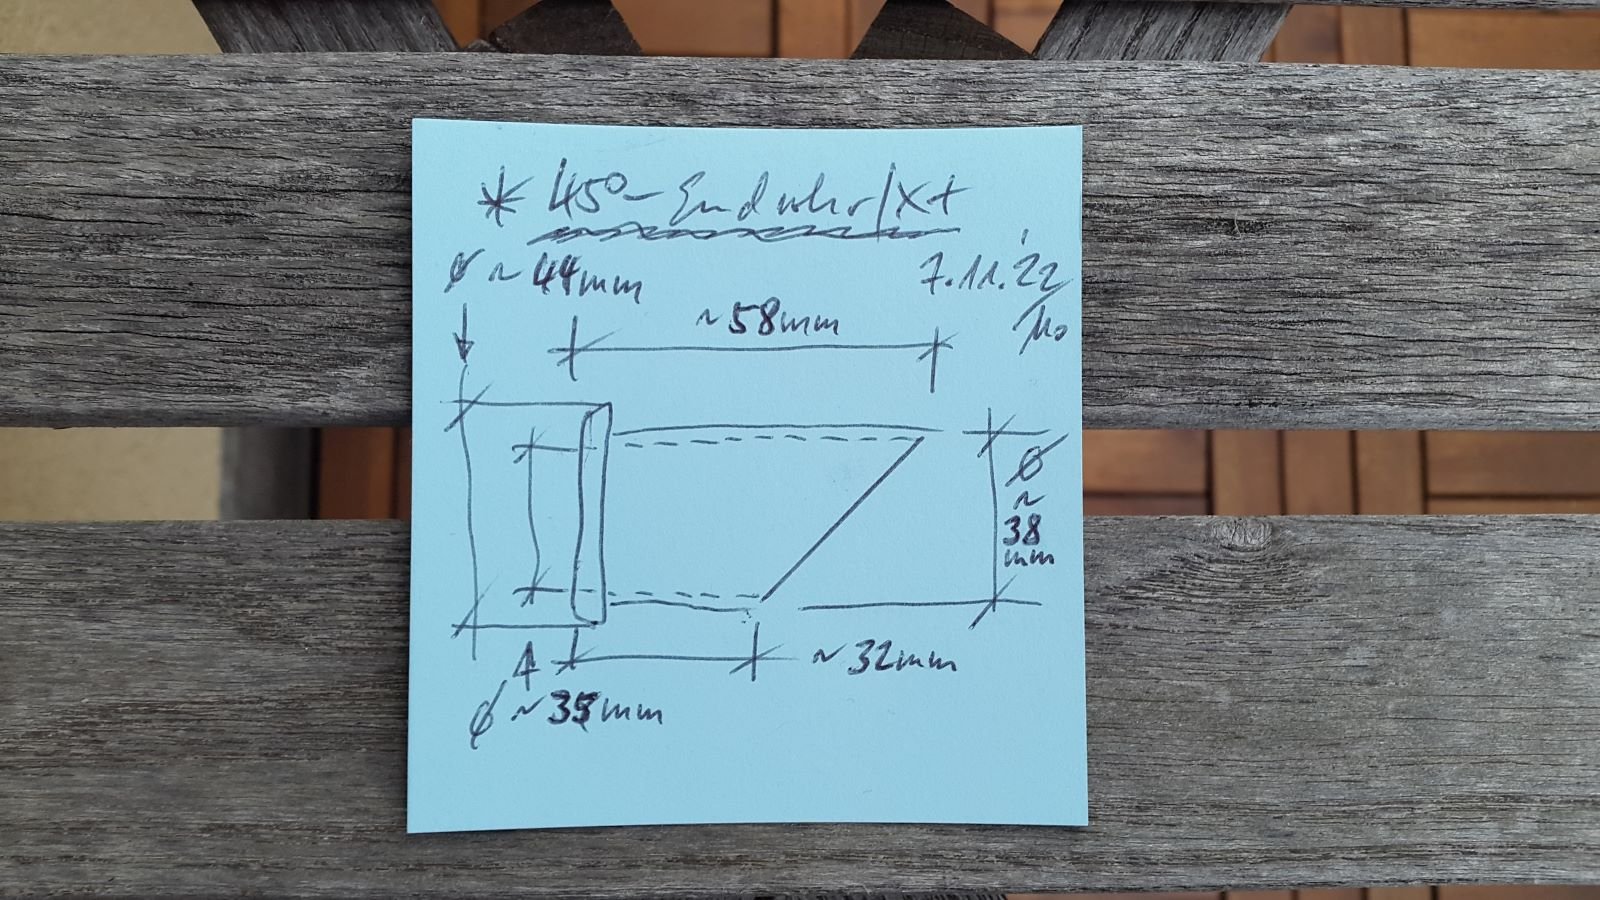 * 45°-Endrohr/XT
ø ~ 44mm
7.11.22
~58mm
ø
~
38
mm
~ 32mm
ø ~35mm